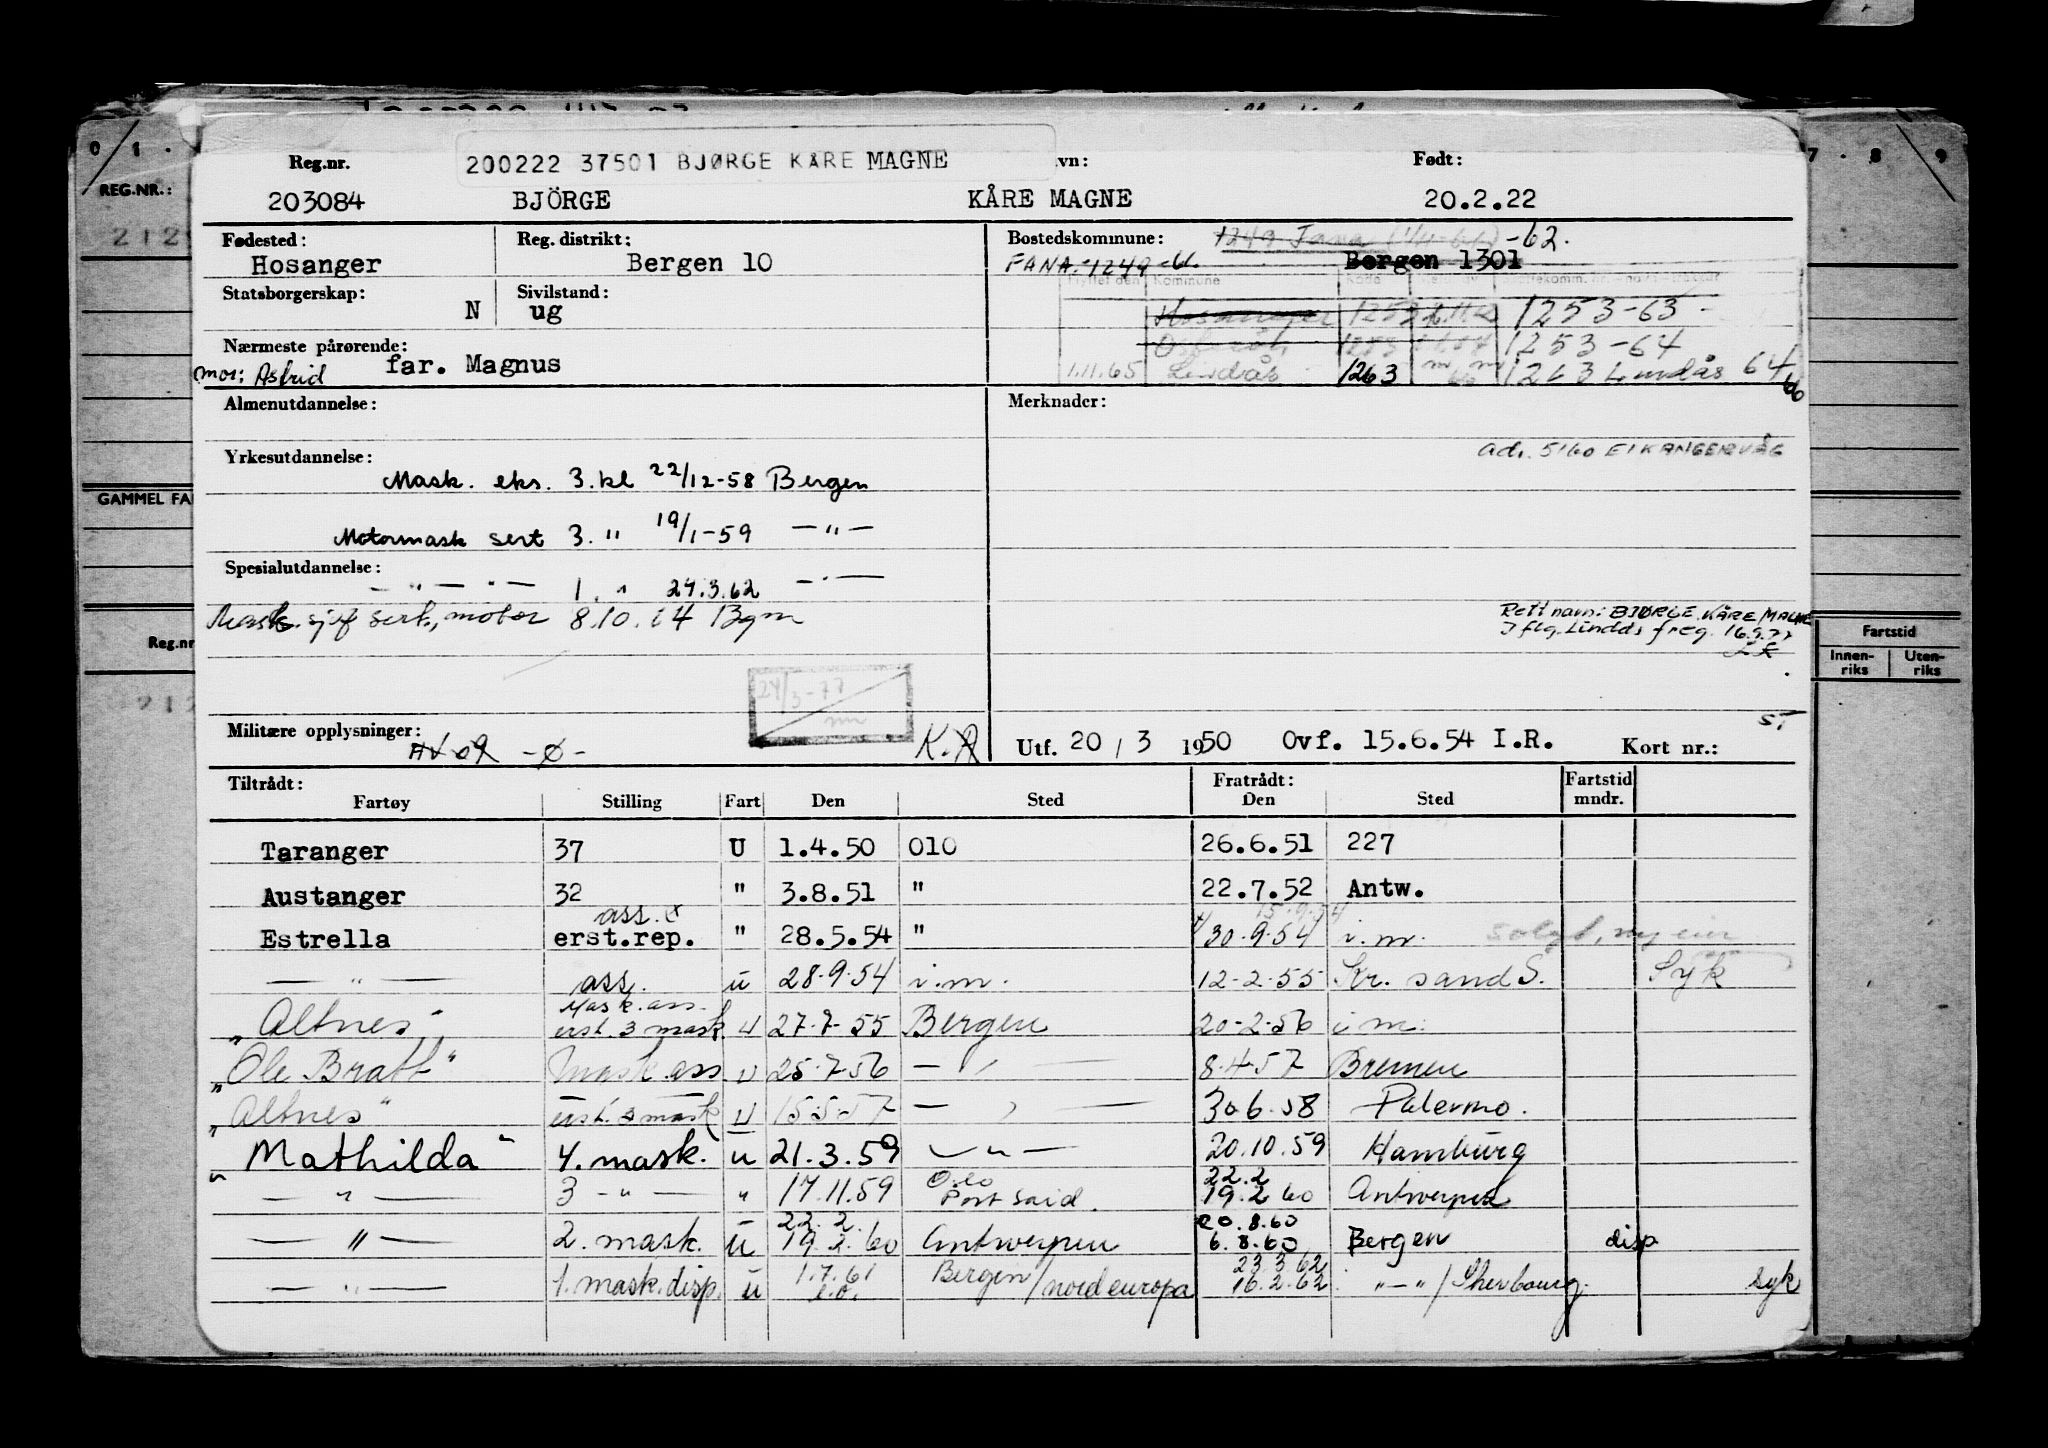 Reg.nr. 200222 37501 BJØRGE KÅRE MAGNE vn: Født:
203084 BJÖRGE KÅRE MAGNE 20.2.22
Fødested: Hosanger
Reg. distrikt: Bergen 10
Bostedskommune: 1249 Fana -62.
FANA. 1249 Bergen 1301
Statsborgerskap: N
Sivilstand: ug
Flyttet den Kommune
Hosanger 1253 1253-63
1253-64
1.11.65 Lindås 1263 1263 Lindås 64
66
Nærmeste pårørende: far. Magnus
mor: Astrid
Almenutdannelse:
Merknader:
Adr. 5160 EIKANGERVÅG
Yrkesutdannelse:
Mask. eks. 3. kl 22/12-58 Bergen
Motormask sert 3. " 19/1-59 — " —
Spesialutdannelse:
— " — " — 1. " 24.3.62 — " —
Mask. sjef sert., motor 8.10.64 Bgn
Rett navn: BJØRGE, KÅRE MAGNE
I flg. Lindås freg. 16.9.77
24/3-77
Militære opplysninger: -ø- K.A
Utf. 20 / 3 1950 Ovf. 15.6.54 I.R. Kort nr.:
Tiltrådt: Fratrådt: Fartstid
Fartøy Stilling Fart Den Sted Den Sted mndr.
Taranger 37 U 1.4.50 010 26.6.51 227
Austanger 32 " 3.8.51 " 22.7.52 Antw.
ass. 15.9.54
Estrella erst.rep. " 28.5.54 " 30.9.54 i.m. solgt, ny eier
— " — ass. u 28.9.54 i.m. 12-2-55 Kr. sand S. Syk
Mask. ass.
"Altnes" erst. 3 mask. U 27-7-55 Bergen 20-2-56 i m.
"Ole Bratt" Mask. ass U 25.7.56 — " — 8.4.57 Bremen
"Altnes" erst. 3 mask U 15.5.57 — " — 30.6.58 Palermo.
"Mathilda" 4. mask. u 21.3.59 — " — 20.10.59 Hamburg
Oslo 22.2
— " — 3 — " — " 17.11.59 Port Said. 19.2.60 Antwerpen
22.2. 20.8.60
— " — 2. mask. u 19.2.60 Antwerpen 6.8.60 Bergen disp
1.7.61 Bergen 23.3.62
— " — 1. mask. disp. u l.o. / nordeuropa 16.2.62 " — " / Sherbourg. syk
REG.NR.:
GAMMEL FA
Reg.nr
Fartstid
Innen-riks Uten-riks
0 1 7 8 9